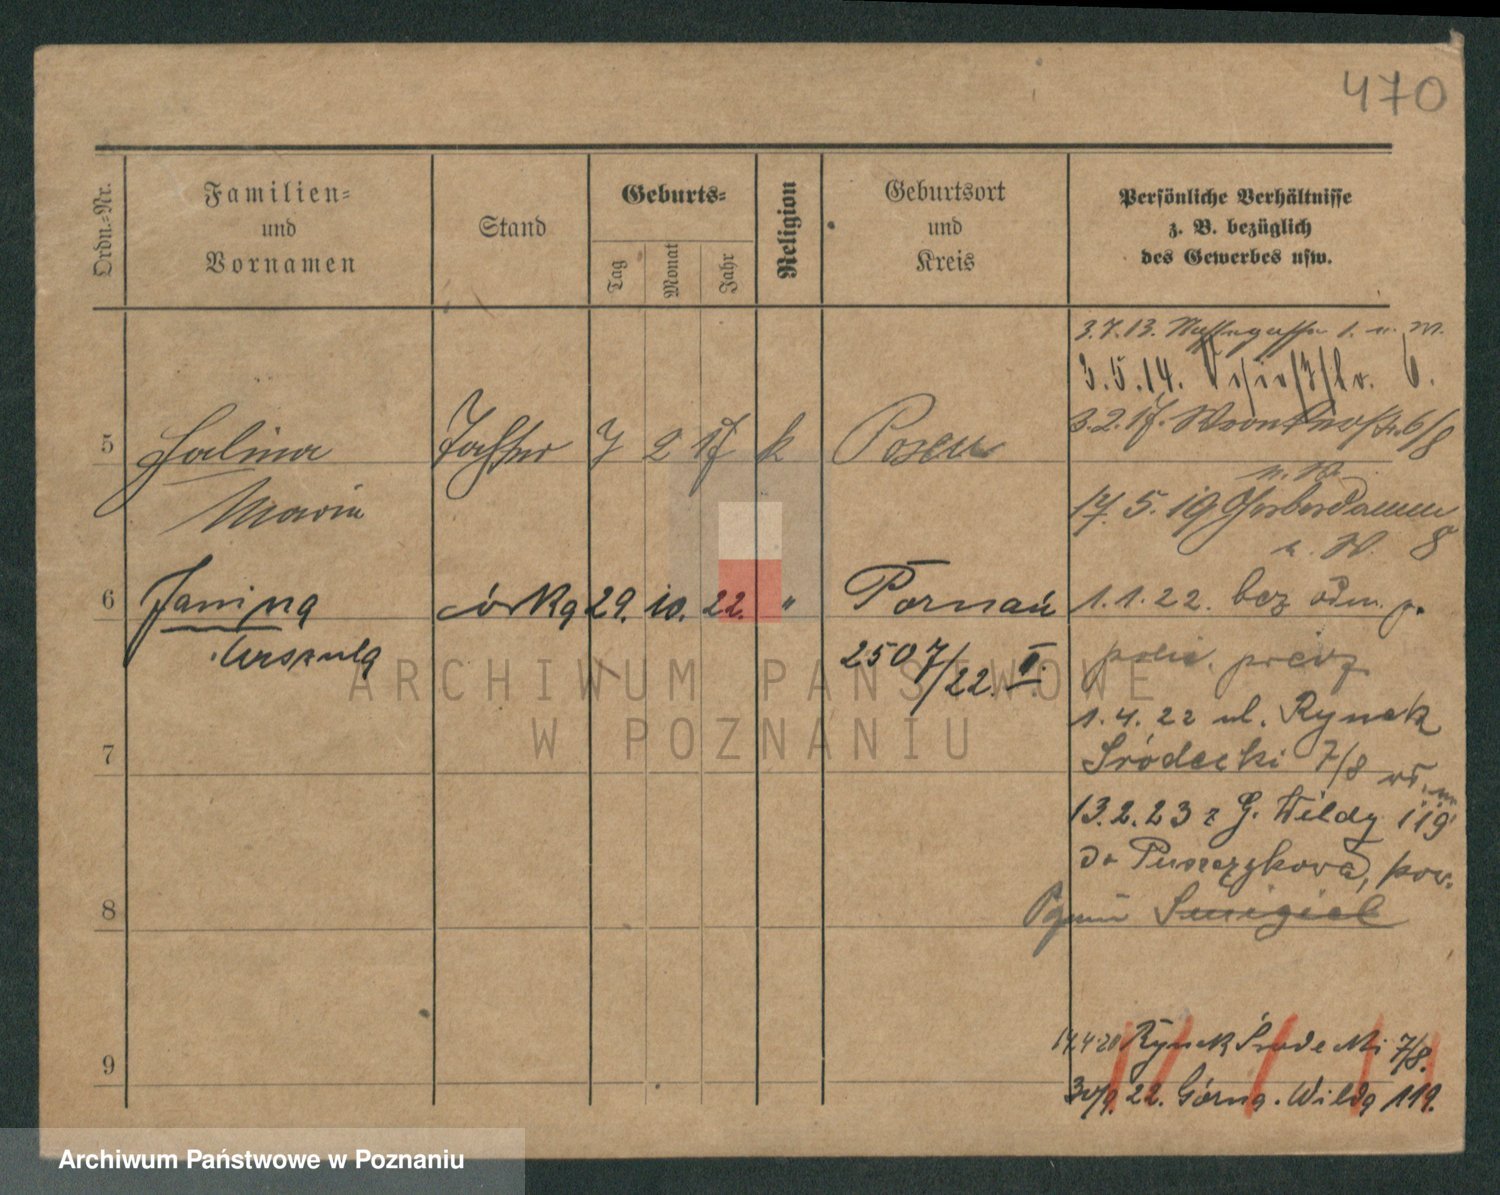 470
Ordn.-Nr.
Familien-
und
Vornamen
Stand
Geburts-
Tag
Monat
Jahr
Religion
Geburtsort
und
Kreis
Persönliche Verhältnisse
z. B. bezüglich
des Gewerbes usw.
3.7.13. 1.
3.5.14. 6.
5 Halina Tochter 7 2 17 k Posen
3.2.17. 6/8
Maria
17.5.19 Gerberdamm
8
6 Janina córka 29. 10. 22. " Poznań
1.1.22. bez
Urszula
2507/22. II.
1.4.22 ul. Rynek
7
Śródecki 7/8
13.2.23 z G. Wildy 119
do Puszczykowa, pow.
8
Śmigiel
14.4.20 Rynek Śródecki 7/8.
9
30/9. 22. Górna. Wilda 119.
ARCHIWUM PAŃSTWOWE
W POZNANIU
Archiwum Państwowe w Poznaniu